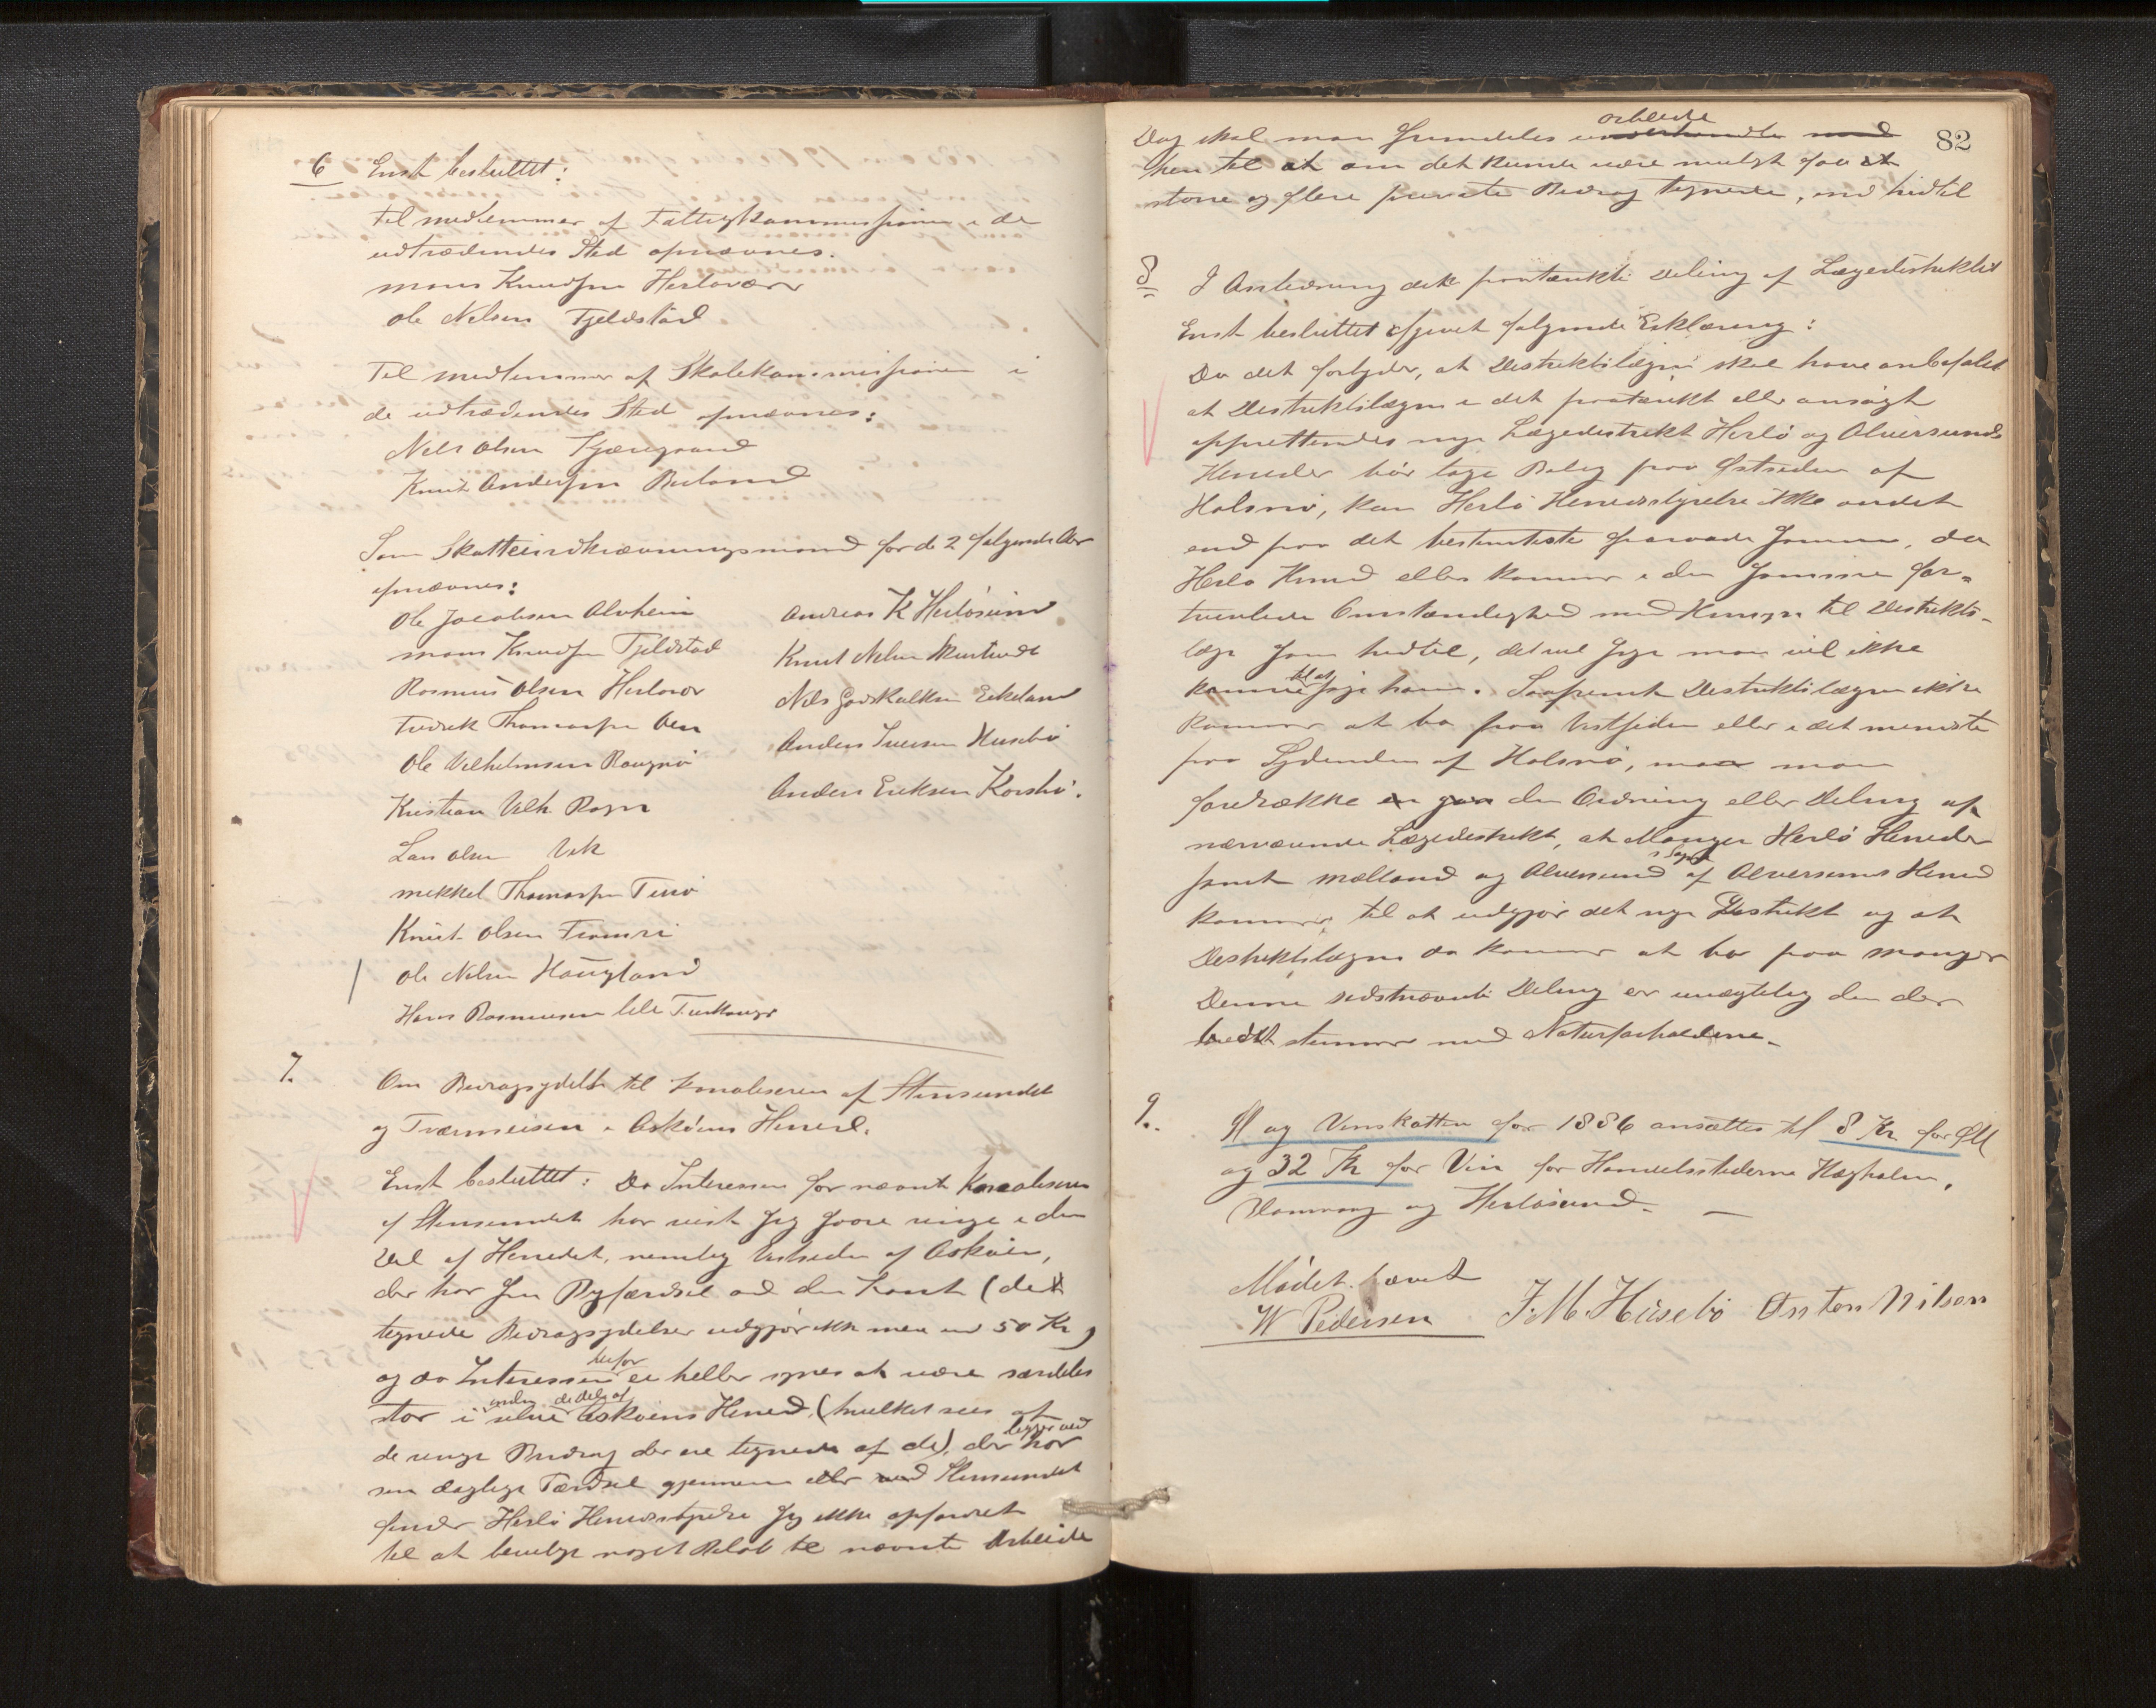 6 Enst besluttet:
til medlemmer af Fattigkommissionen i de
udtrædendes Sted opnævnes.
Mons Knudsen Herlovær
Ole Nelsen Fjeldstad
Til medlemmer af Skolekommissionen i
de udtrædendes Sted opnævnes:
Nels Olsen
Knut Andersen Buland
Som Skatteindkrævningsmænd for de 2 følgende Aar
opnævnes:
Ole Jacobsen Alvheim
Mons Knudsen Fjeldstad
Rasmus Olsen Herlovær
Fredrik Thomassen Oen
Ole Vilhelmsen Rongnø
Kristian Vilh Rogn
Lars Olsen Vik
Mikkel Thomassen
Knut Olsen
Ole Nelsen Haugland
Hans Rasmusen lile
Andreas K Herløsund
Knut Nelsen
Nils Godskalksen Eikeland
Anders Iversen Husebø
Anders Eriksen Kors­bø.
7. Om Bidragsydelse til Kanaliseren af Stensundet
og Tværmeisen i Askøens Hered.
Enst besluttet: Da Interessen for nævnte Kanaliseren
af Stensundet har vist sig saare ringe i den
Del af Heredet, nemlig Vestsiden af Askøen,
der har sin Byfærdsel ad den Kant (de
tegnede Bidragsydelser udgjør ikke mere end 50 Kr)
og da Interessen herfor ei heller synes at være særdeles
stor i selve inden de dele af Askøens Hered, (hvilket sees af
de ringe Bidrag der ere tegnede af de), der ligger ved har
sin daglige Færdsel gjennem eller ved Stensundet
finder Herlø Heredsstyrelse sig ikke opfordret
til at bevilge noget Beløb til nævnte Arbeide
82
arbeide
Dog skal man fremdeles underhandle med
hen til at om det kunde være muligt faa et
større og flere private Bidrag tegnede, end hidtil
8 I Anledning den paatænkte Deling af Lægedistriktet
Enst besluttet afgivet følgende Erklæring:
Da det forlyder, at Distriktslægen skal have anbefalet
at Distriktslægen i det paatænkt eller ansøgt
opprettendes nye Lægedistrikt Herlø og Alversunds
Hereder bør tage Bolig paa Østsiden af
Holsnø, kan Herlø Heredsstyrelse ikke andet
end paa det bestemteste fraraade samme, da
Herlø Hered ellers kommer i den samme for-
tvivlede Omstændighed med Hensyn til Distrikts-
læge som hidtil, det vil sige man vil ikke
komme til at søge ham. Saafremt Distriktslægen ikke
kommer at bo paa Vestsiden eller i det mindste
paa Sydenden af Holsnø, maa man
foretrække en gaa den Ordning eller Deling af
nærværende Lægedistrikt, at Manger Herlø Hereder
samt Mælland og Alversund Sogne af Alversunds Hered
kommer til at udgjør det nye Distrikt og at
Distriktslægen da kommer at bo paa Manger
Denne sidstnævnte Deling er unægtelig den der
bedst stemmer med Naturforholdene.
9. Øl og Vinskatten for 1886 ansættes til 8 Kr for Øll
og 32 Kr for Vin for Handelsstederne Hægholm,
og Herløsund. —
Mødet hævet
W Pedersen J. M. Husebø Anton Nilsen